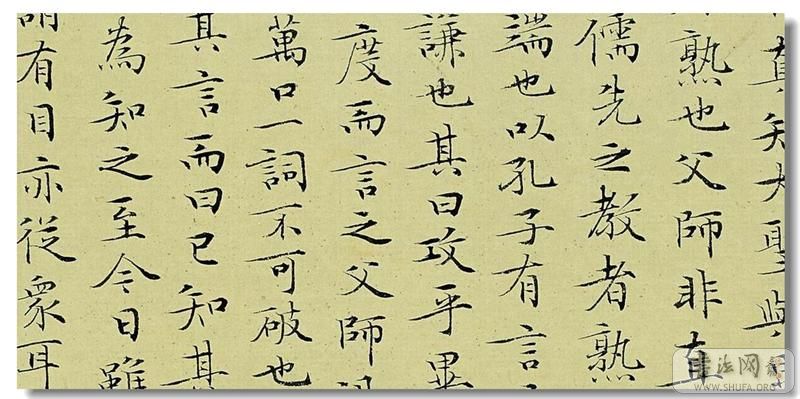 真知大聖與
熟也父師非真
儒先之教者熟
端也以孔子有言
謙也其曰攻乎異
度而言之父師
萬口一詞不可破也
其言而曰已知其
為知之至今日雖
謂有目亦從眾耳
書法网
WWW.SHUFA.ORG